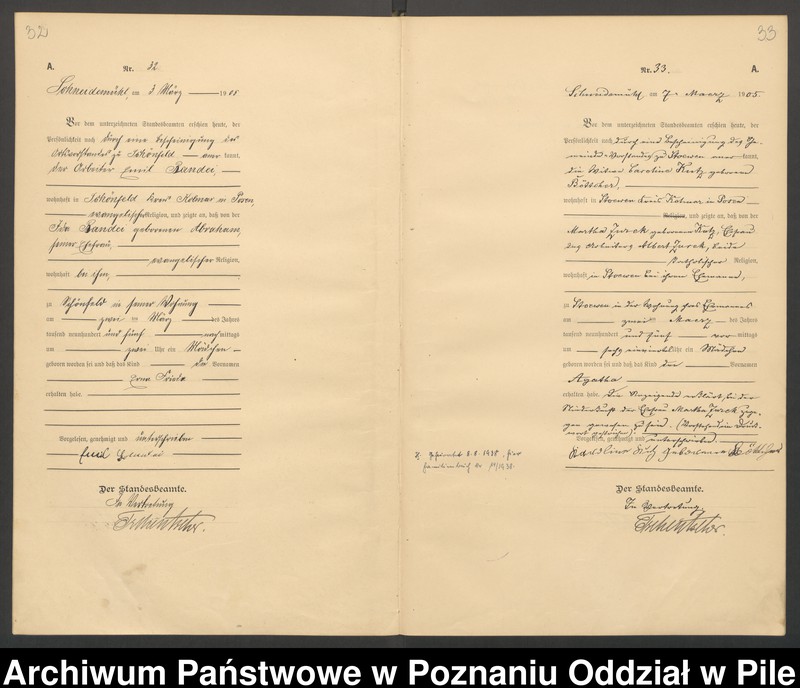 32
A.
Nr. 32
Schneidemühl, am 3 März 1905
Vor dem unterzeichneten Standesbeamten erschien heute, der
Persönlichkeit nach durch eine Bescheinigung des
Ortsvorstandes zu Schönfeld anerkannt,
der Arbeiter Emil Bandei,
wohnhaft in Schönfeld Kreis Kolmar in Posen,
evangelischer Religion, und zeigte an, daß von der
Ida Bandei geborenen Abraham,
seiner Ehefrau,
evangelischer Religion,
wohnhaft bei ihm,
zu Schönfeld in seiner Wohnung
am zwei ten März des Jahres
tausend neunhundert und fünf nachmittags
um zwei Uhr ein Mädchen
geboren worden sei und daß das Kind die Vornamen
Erna Frieda
erhalten habe.
Vorgelesen, genehmigt und unterschrieben
Emil
Der Standesbeamte.
In Vertretung
33
Nr. 33.
A.
Schneidemühl am 7. Maerz 1905.
Vor dem unterzeichneten Standesbeamten erschien heute, der
Persönlichkeit nach durch eine Bescheinigung des Ge-
meinde-Vorstandes zu Stoewen anerkannt,
die Witwe Caroline geborene
Böttcher,
wohnhaft in Stoewen Kreis Kolmar in Posen
Religion, und zeigte an, daß von der
Martha Zureck geborenen Ehefrau
des Arbeiters Albert Zureck, beide
katholischer Religion,
wohnhaft in Stoewen bei ihrem Ehemanne,
zu Stoewen in der Wohnung ihres Ehemannes
am zwei ten Maerz des Jahres
tausend neunhundert und fünf vormittags
um sechs einviertel Uhr ein Mädchen
geboren worden sei und daß das Kind den Vornamen
Agatha
erhalten habe. Die Anzeigende erklärt, bei der
Niederkunft der Ehefrau Martha Zureck zuge-
gen gewesen zu sein. (Vorstehend ein Druck-
wort gestrichen).
Vorgelesen, genehmigt und unterschrieben.
geborene Böttcher
Der Standesbeamte.
In Vertretung
Archiwum Państwowe w Poznaniu Oddział w Pile